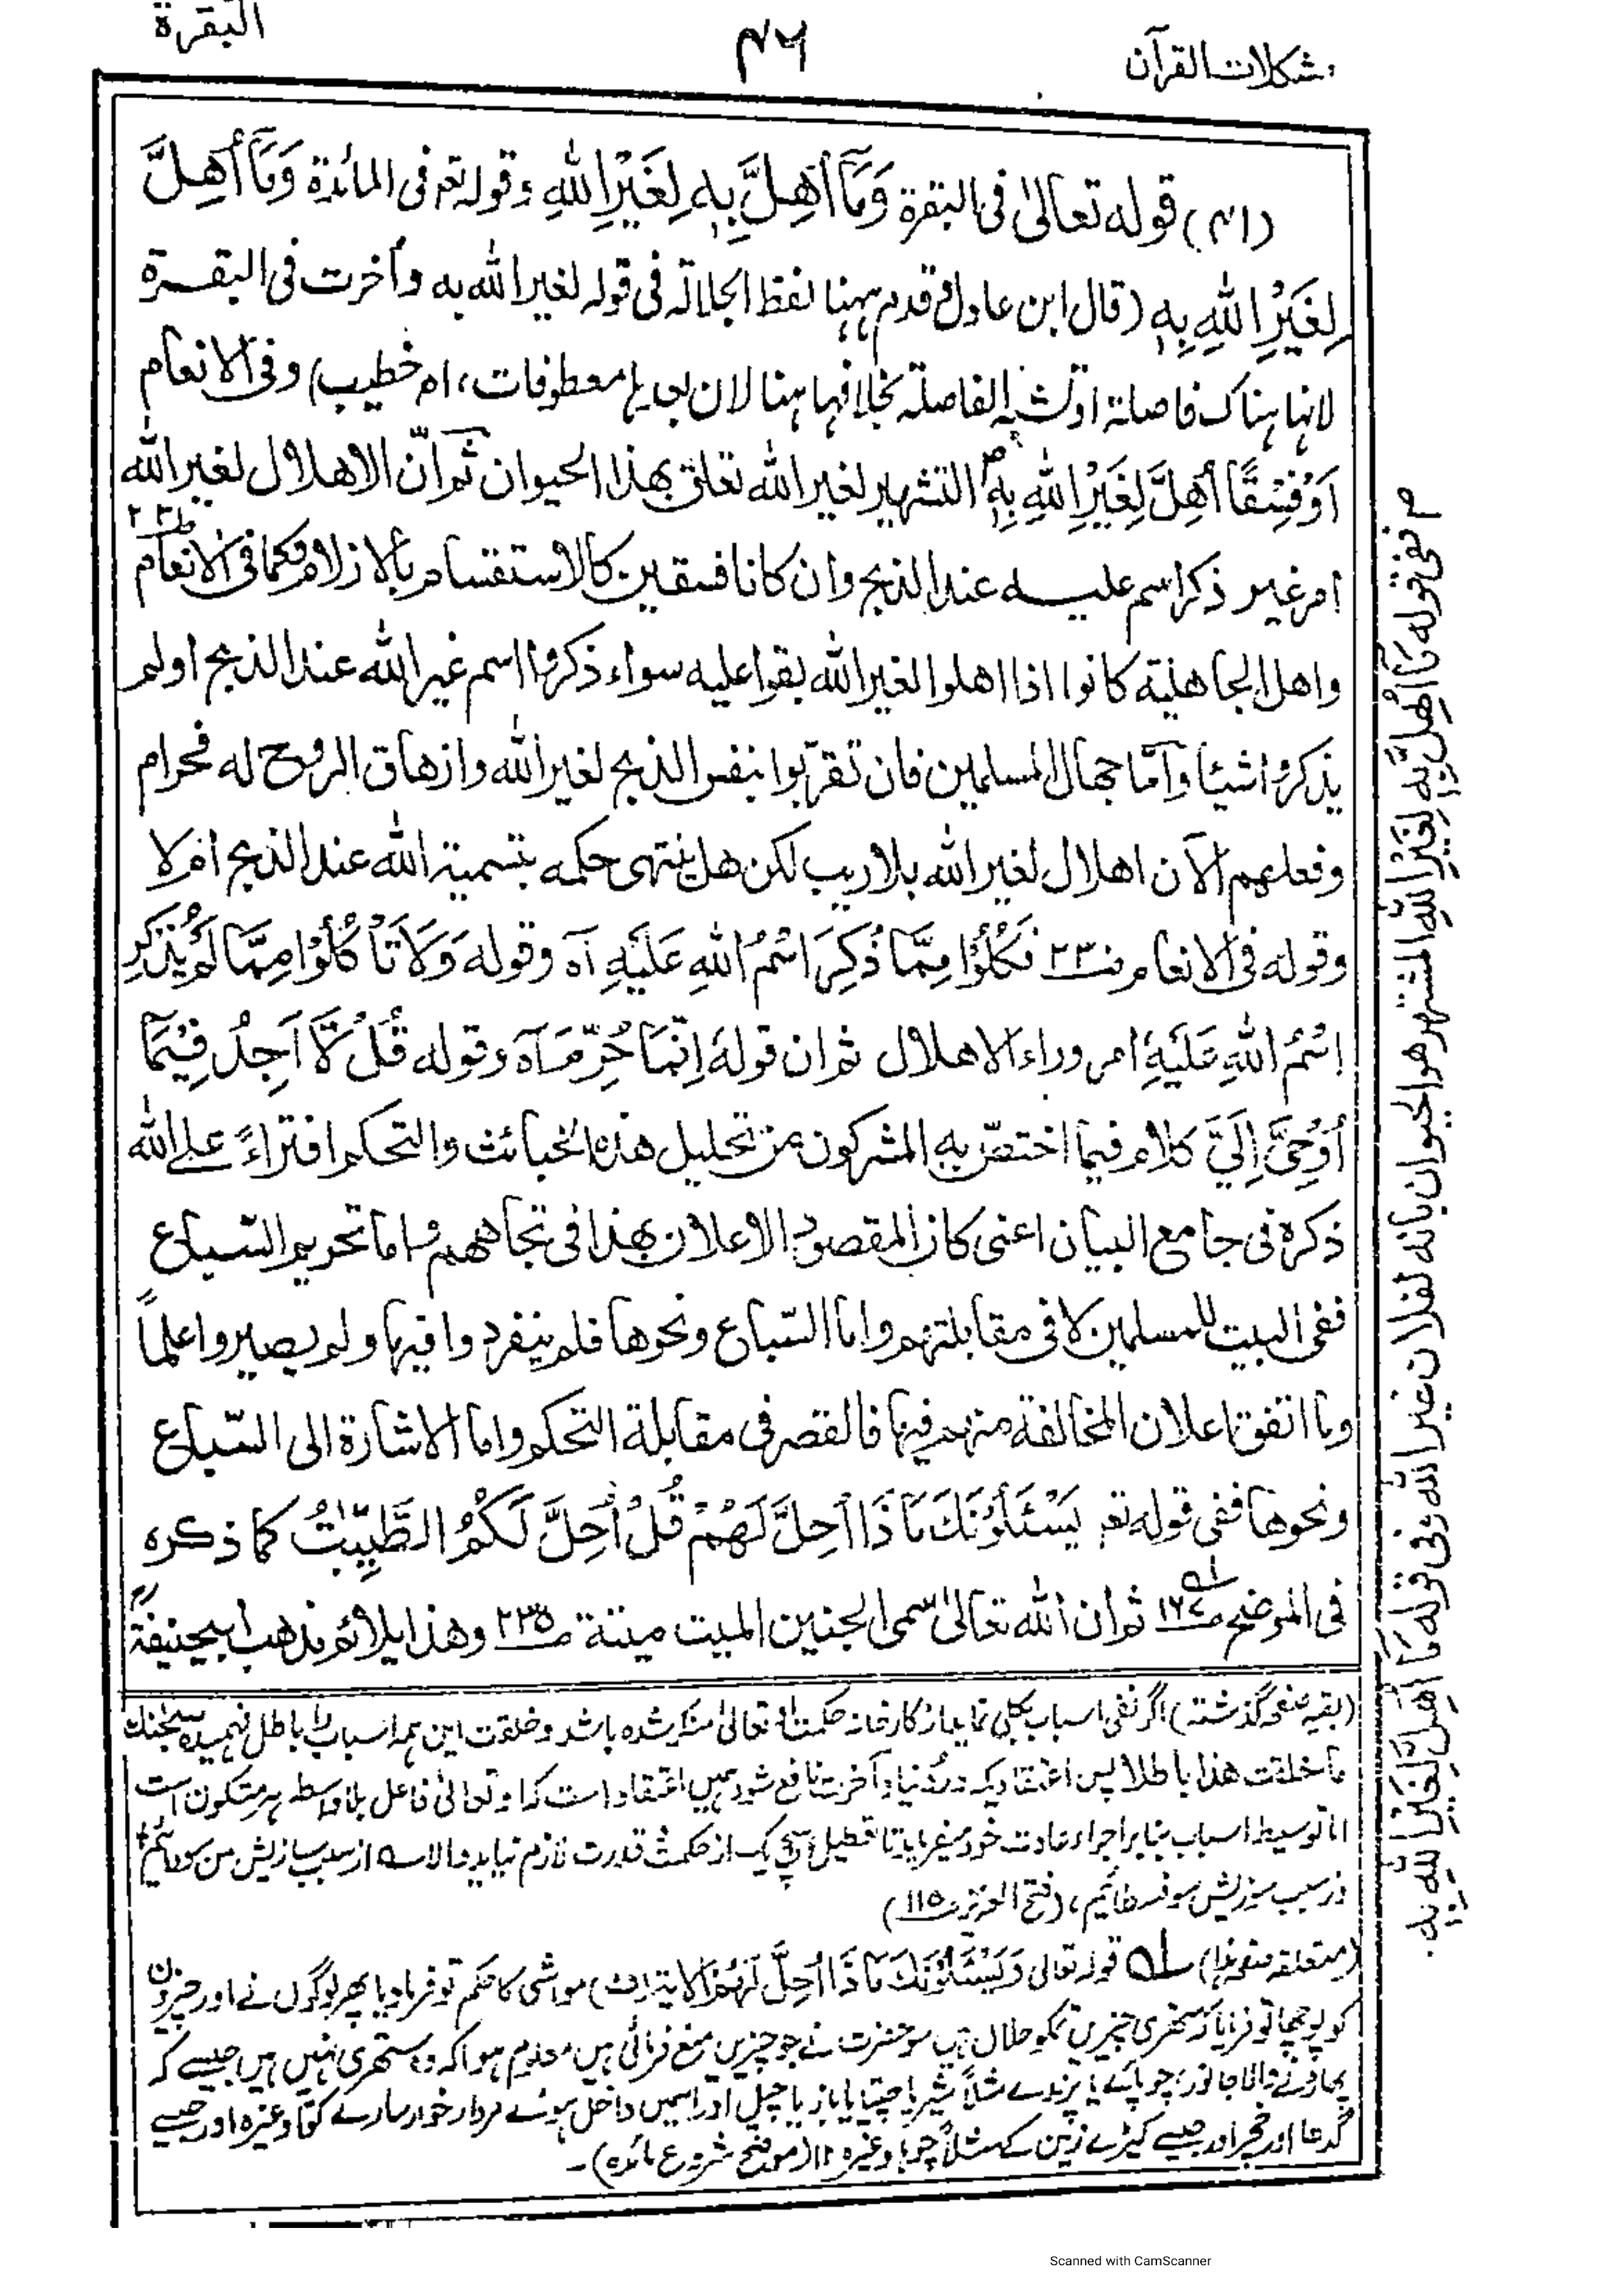 البقرة
۴۶
مشكلات القرآن
(۴۱) قوله تعالىٰ فى البقرة وَمَآ اُهِلَّ بِهٖ لِغَيْرِ اللّٰهِ وقوله تعـ فى المائدة وَمَآ أُهِلَّ
لِغَيْرِ اللّٰهِ بِهٖ (قال ابن عادل قدم ههنا لفظ الجلالة فى قوله لغير الله به وأخرت فى البقرة
لانها هناك فاصلة او تشبه الفاصلة بخلافها هنا لان بعدها معطوفات، اھ خطيب) وفى الانعام
اَوْ فِسْقًا اُهِلَّ لِغَيْرِ اللّٰهِ بِهٖ التشهير لغير الله تعلق بهذا الحيوان ثم انّ الاهلال لغير الله
امر غير ذكر اسم عليه عند الذبح وان كانا فسقين كالاستقسام بالازلام فكما فى الانعام
واهل الجاهلية كانوا اذا اهلوا لغير الله بقوا عليه سواء ذكروا اسم غير الله عند الذبح او لم
يذكروا شيئا وَاَمّا جهال المسلمين فان تقربوا بنفس الذبح لغير الله وازهاق الروح له فحرام
وفعلهم الآن اهلال لغير الله بلا ريب لكن هل ينتهى حكمه بتسمية الله عند الذبح ام لا
وقوله فى الانعام صـ۲۳۰ فَكُلُوْا مِمَّا ذُكِرَ اسْمُ اللّٰهِ عَلَيْهِ آه وقوله وَلَا تَأْكُلُوْا مِمَّا لَمْ يُذْكَرِ
اسْمُ اللّٰهِ عَلَيْهِ امر وراء الاهلال ثم ان قولهٗ اِنَّمَا حُرِّمَ آه وقوله قُلْ لَّآ اَجِدُ فِيْمَآ
اُوْحِىَ اِلَيَّ كلام فيما اختصّ به المشركون من تحليل هذه الخبائث والتحكم افتراءً على الله
ذكره فى جامع البيان اعنى كان المقصود الاعلان بهذا فى تجاههم واما تحريم السّباع
ففى البيت للمسلمين لا فى مقابلتهم واما السّباع ونحوها فلم ينفردوا فيها ولم يصيروا علماً
وما اتفق اعلان المخالفة منهم فيها فالقصر فى مقابلة التحكم واما الاشارة الى السّباع
ونحوها ففى قوله تعـ يَسْئَلُوْنَكَ مَاذَا اُحِلَّ لَهُمْ قُلْ اُحِلَّ لَكُمُ الطَّيِّبٰتُ كما ذكره
فى الموضح صـ۱۶۷ ثم ان الله تعالىٰ سمى الجنين الميت ميتة صـ۲۳۵ وهذا يلائم مذهب ابيحنيفةؒ
(بقیہ صفحہ گذشتہ) اگر نفی اسباب بکلی نماید از کارخانہ حکمت او تعالیٰ منکر شدہ باشد و خلقت این ہمہ اسباب را باطل فہمیدہ سبحنك
ما خلقت هذا باطلا پس اعتقادیکہ در دنیا و آخرت نافع شود ہمیں اعتقاد است کہ او تعالیٰ فاعل بلا واسطہ ہر متکون است
اما توسیط اسباب بنابر اجراء عادت خود میفرماید تا تعطیل ہیچ یک از حکمت و قدرت لازم نیاید
از سبب سوزیش سوفسطائیم، (فتح العزیز صـ۱۱۵)
(متعلقہ صفحہ ہذا) لہ قولہ تعالی وَيَسْئَلُوْنَكَ مَاذَا اُحِلَّ لَهُمْ الآية مواشی کا حکم تو فرمادیا پھر لوگوں نے اور چیزوں
کو پوچھا تو فرمایا کہ ستھری چیزیں تمکو حلال ہیں سو حضرت نے جو چیزیں منع فرمائی ہیں معلوم ہوا کہ وہ ستھری نہیں ہیں جیسے کہ
پھاڑنے والا جانور، چوپائے یا پرندے مثلاً شیر یا چیتا یا باز یا چیل اور اسمیں داخل ہوئے مردار خوار سارے کوّا وغیرہ اور جیسے
گدھا اور خچر اور جیسے کیڑے زمین کے مثلاً چوہا وغیرہ ۱۲ (موضح شروع مائدہ)۔
ففى قوله مَآ اُهِلَّ بِهٖ لِغَيْرِ اللّٰهِ المشتهر هو الحيوان بانه لفلان غير الله وفى قوله مَآ اُهِلَّ لِغَيْرِ اللّٰهِ بِهٖ.
Scanned with CamScanner